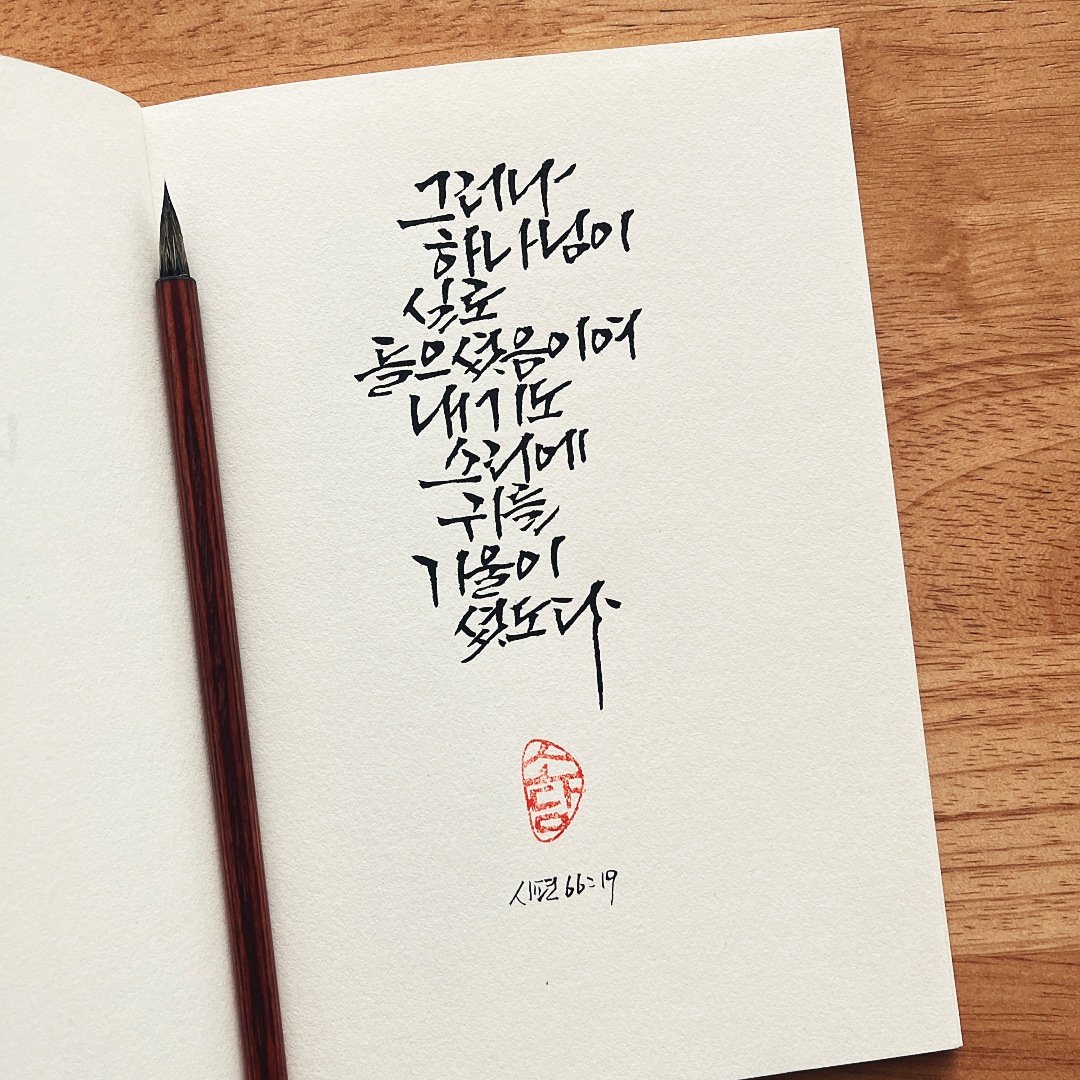 그러나
하나님이
실로
들으셨음이여
내 기도
소리에
귀를
기울이
셨도다
소담
시편 66:19